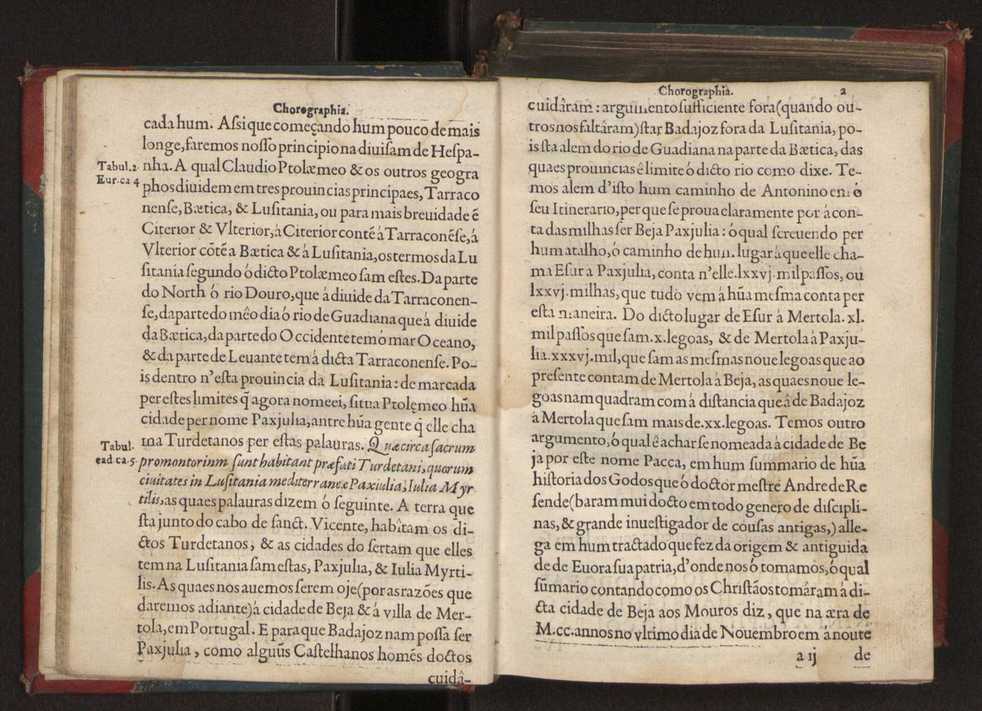 Chorographia.
cada hum. Assi que começando hum pouco de mais
longe, faremos nosso principio na diuisam de Hespa-
Tabul.2. nha. A qual Claudio Ptolæmeo & os outros geogra
Eur.ca 4 phos diuidem em tres prouincias principaes, Tarraco
nense, Bætica, & Lusitania, ou para mais breuidade ẽ
Citerior & Vlterior, á Citerior contẽ á Tarraconẽse, á
Vlterior cõtẽ a Bætica & á Lusitania, os termos da Lu
sitania segundo ó dicto Ptolæmeo sam estes. Da parte
do North ó rio Douro, que á diuide da Tarraconen-
se, da parte do mêo dia ó rio de Guadiana que á diuide
da Bætica, da parte do Occidente tem ó mar Oceano,
& da parte de Leuante tem á dicta Tarraconense. Po-
is dentro n'esta prouincia da Lusitania: demarcada
per estes limites q̃ agora nomeei, situa Ptolęmeo hũa
cidade per nome Paxjulia, antre hũa gente q̃ elle cha
Tabul. ma Turdetanos per estas palauras. Quæ circa sacrum
ead ca.5. promontorium sunt habitant præfati Turdetani, quorum
ciuitates in Lusitania mediterraneæ Paxiulia, Iulia Myr
tilis, as quaes palauras dizem ó seguinte. A terra que
sta junto do cabo de sanct. Vicente, habitam os di-
ctos Turdetanos, & as cidades do sertam que elles
tem na Lusitania sam estas, Paxjulia, & Iulia Myrti-
lis. As quaes nos auemos serem oje (por as razões que
daremos adiante) á cidade de Beja & á villa de Mer-
tola, em Portugal. E para que Badajoz nam possa ser
Paxjulia, como algũus Castelhanos homẽs doctos
cuidâ-
Chorographia. 2
cuidâram: argumento sufficiente fora (quando ou-
tros nos faltâram) star Badajoz fora da Lusitania, po-
is sta alem do rio de Guadiana na parte da Bætica, das
quaes prouincias ê limite ó dicto rio como dixe. Te-
mos alem d'isto hum caminho de Antonino em ó
seu Itinerario, per que se proua claramente por á con-
ta das milhas ser Beja Paxjulia: ó qual screuendo per
hum atalho, ó caminho de hum lugar á que elle cha-
ma Esur a Paxjulia, conta n'elle. lxxvj. mil passos, ou
lxxvj. milhas, que tudo vem á hũa mesma conta per
esta maneira. Do dicto lugar de Esur á Mertola. xl.
mil passos que sam. x. legoas, & de Mertola à Paxju-
lia. xxxvj. mil, que sam as mesmas noue legoas que ao
presente contam de Mertola à Beja, as quaes noue le-
goas nam quadram com á distancia que á de Badajoz
à Mertola que sam mais de. xx. legoas. Temos outro
argumento, ó qual ê achar se nomeada á cidade de Be
ja por este nome Pacca, em hum summario de hũa
historia dos Godos que ó doctor mestre Andre de Re
sende (baram mui docto em todo genero de discipli-
nas, & grande inuestigador de cousas antigas,) alle-
ga em hum tractado que fez da origem & antiguida
de de Euora sua patria, d'onde nos ó tomamos, ó qual
sũmario contando como os Christãos tomâram á di-
cta cidade de Beja aos Mouros diz, que na æra de
M.cc. annos no vltimo dia de Nouembro em á noute
a ij de